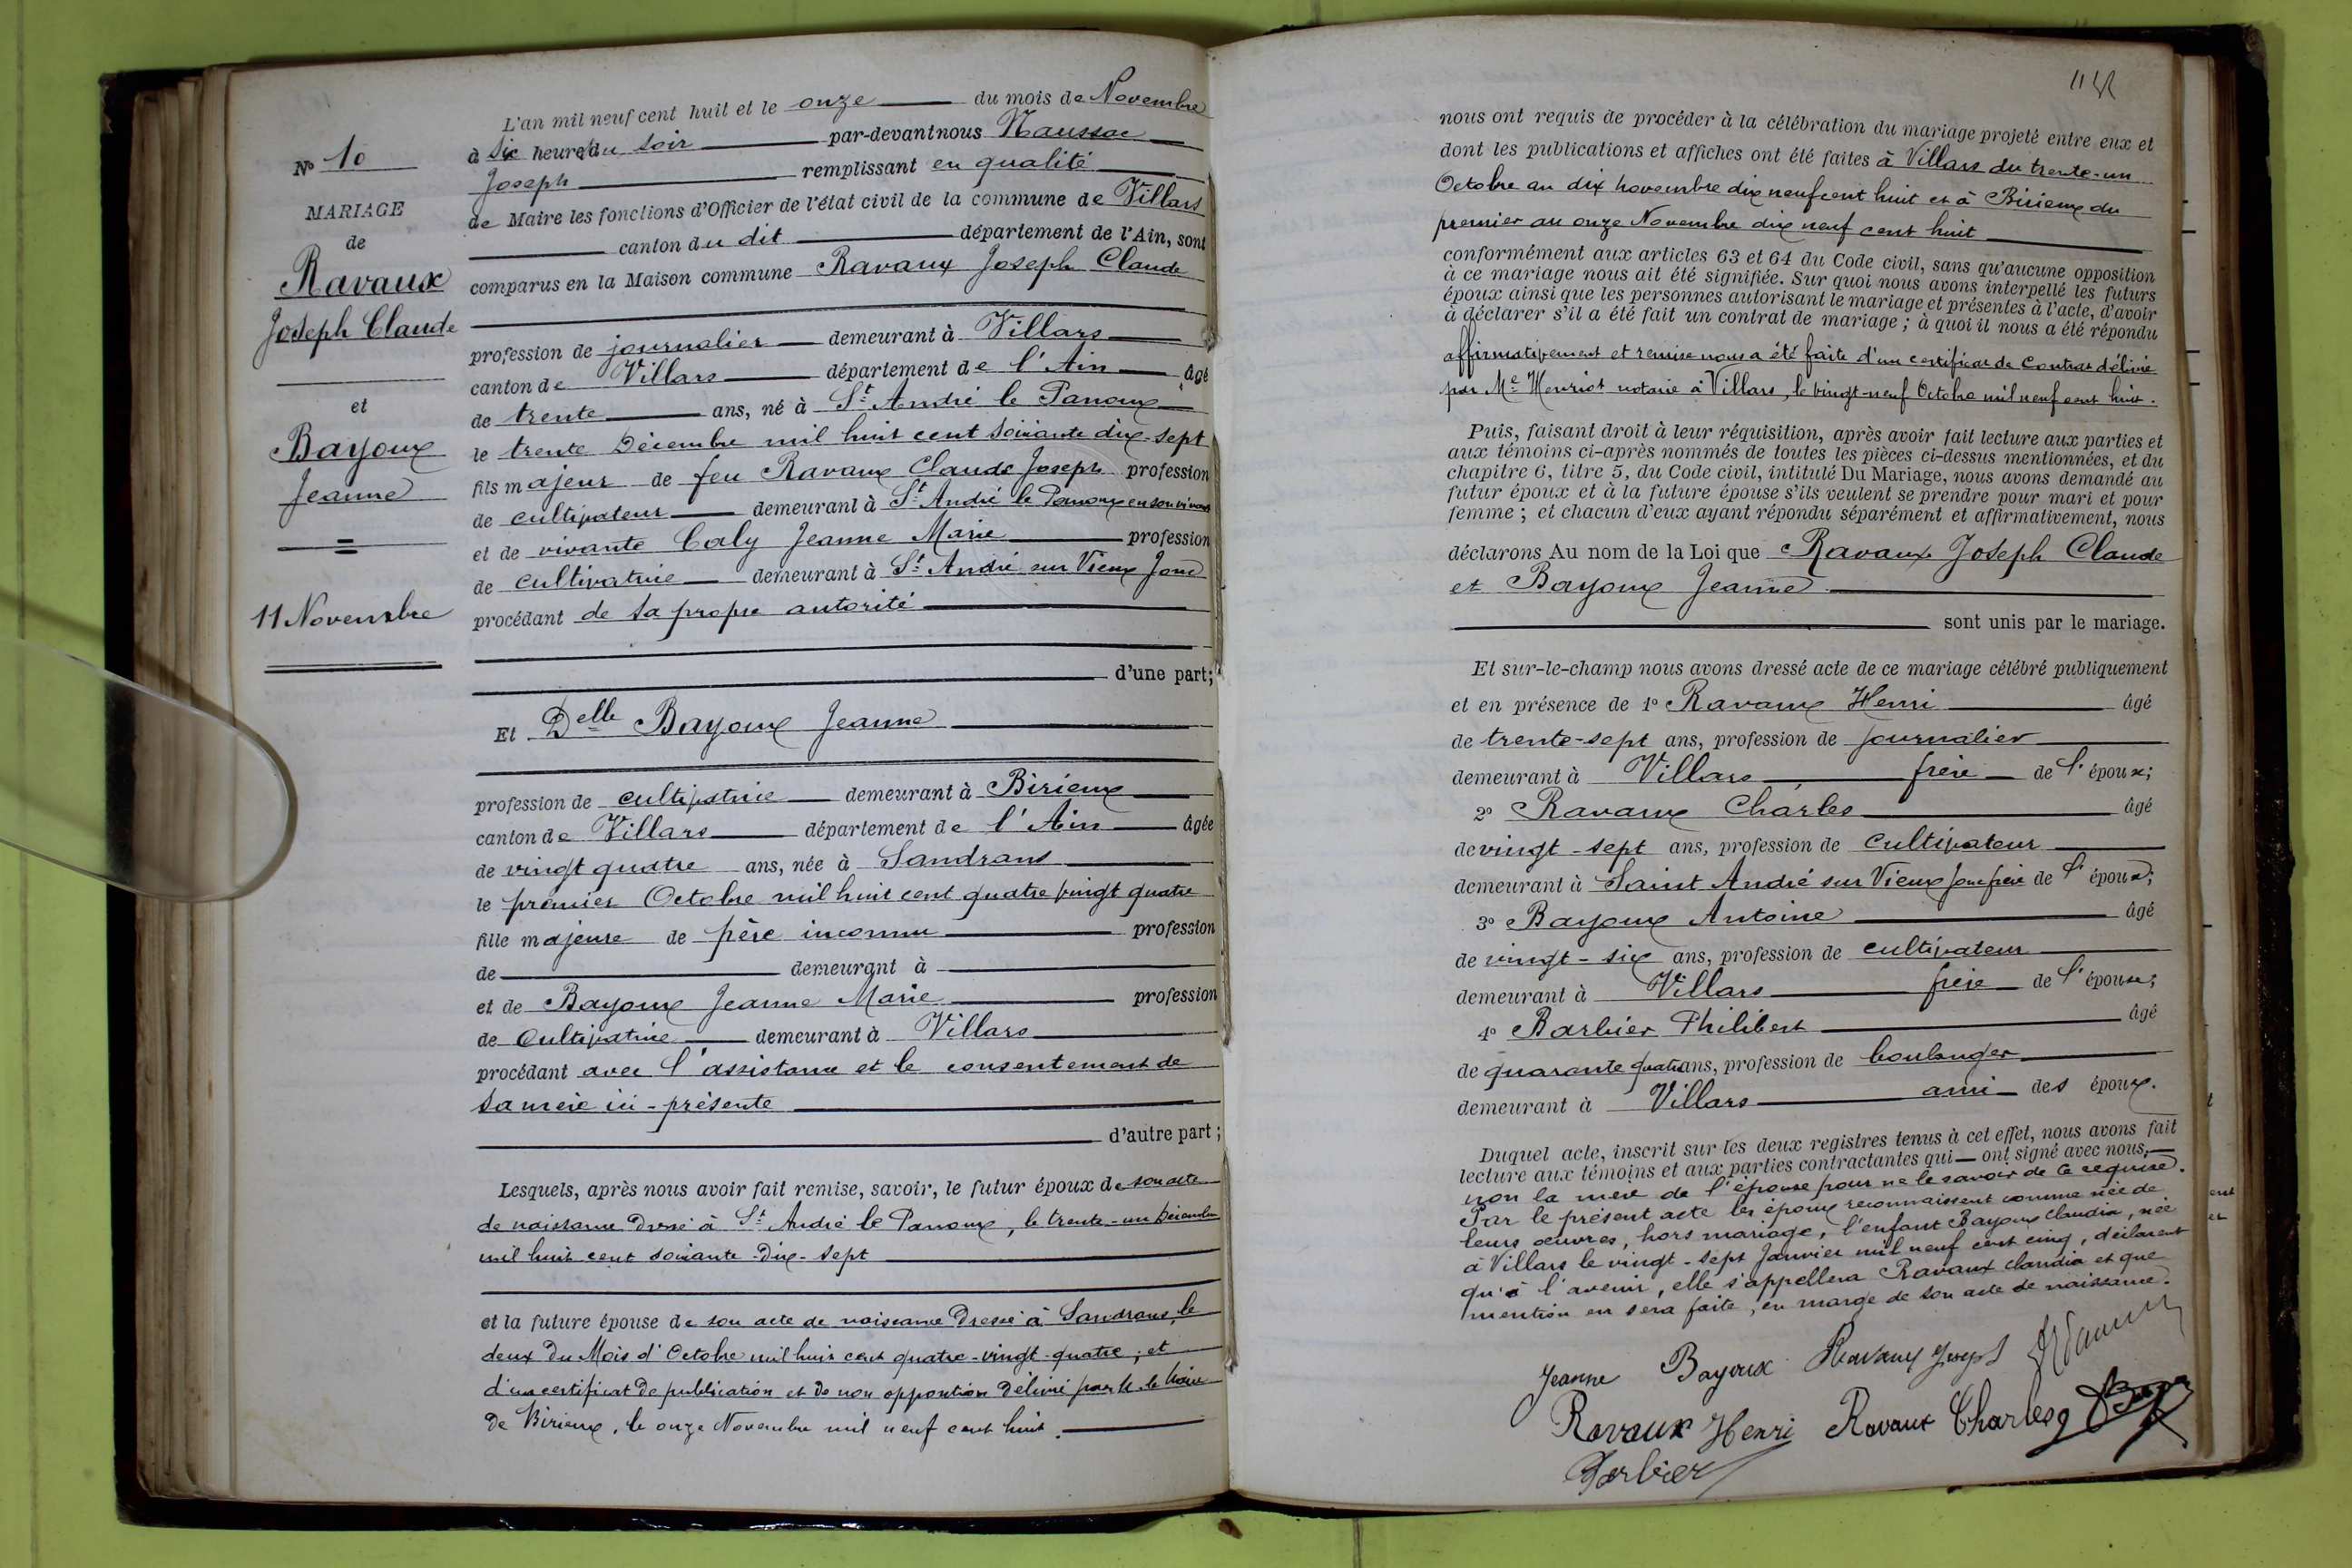 N° 10
MARIAGE
de
Ravaux
Joseph Claude
et
Bayoux
Jeanne
11 Novembre
L'an mil neuf cent huit et le onze du mois de Novembre
à Six heures du soir par-devant nous Naussac
Joseph remplissant en qualité
de Maire les fonctions d'Officier de l'état civil de la commune de Villars
canton du dit département de l'Ain, sont
comparus en la Maison commune Ravaux Joseph Claude
profession de journalier demeurant à Villars
canton de Villars département de l'Ain âgé
de trente ans, né à St André le Panoux
le trente Décembre mil huit cent soixante dix-sept
fils majeur de feu Ravaux Claude Joseph profession
de cultivateur demeurant à St André le Panoux en son vivant
et de vivante Caly Jeanne Marie profession
de cultivatrice demeurant à St André sur Vieux Jonc
procédant de sa propre autorité
d'une part;
Et Delle Bayoux Jeanne
profession de cultivatrice demeurant à Birieux
canton de Villars département de l'Ain âgée
de vingt quatre ans, née à Sandrans
le premier Octobre mil huit cent quatre vingt quatre
fille majeure de père inconnu profession
de demeurant à
et de Bayoux Jeanne Marie profession
de Cultivatrice demeurant à Villars
procédant avec l'assistance et le consentement de
sa mère ici-présente
d'autre part;
Lesquels, après nous avoir fait remise, savoir, le futur époux de son acte
de naissance dressé à St André le Panoux, le trente-un Décembre
mil huit cent soixante-dix-sept
et la future épouse de son acte de naissance dressé à Sandrans, le
deux du Mois d'Octobre mil huit cent quatre-vingt-quatre; et
d'un certificat de publication et de non opposition délivré par M. le Maire
de Birieux, le onze Novembre mil neuf cent huit.
nous ont requis de procéder à la célébration du mariage projeté entre eux et
dont les publications et affiches ont été faites à Villars du trente-un
Octobre au dix novembre dix neuf cent huit et à Birieux du
premier au onze Novembre dix neuf cent huit
conformément aux articles 63 et 64 du Code civil, sans qu'aucune opposition
à ce mariage nous ait été signifiée. Sur quoi nous avons interpellé les futurs
époux ainsi que les personnes autorisant le mariage et présentes à l'acte, d'avoir
à déclarer s'il a été fait un contrat de mariage; à quoi il nous a été répondu
affirmativement et remise nous a été faite d'un certificat de contrat délivré
par Me Henriot notaire à Villars, le vingt-neuf Octobre mil neuf cent huit.
Puis, faisant droit à leur réquisition, après avoir fait lecture aux parties et
aux témoins ci-après nommés de toutes les pièces ci-dessus mentionnées, et du
chapitre 6, titre 5, du Code civil, intitulé Du Mariage, nous avons demandé au
futur époux et à la future épouse s'ils veulent se prendre pour mari et pour
femme; et chacun d'eux ayant répondu séparément et affirmativement, nous
déclarons Au nom de la Loi que Ravaux Joseph Claude
et Bayoux Jeanne
sont unis par le mariage.
Et sur-le-champ nous avons dressé acte de ce mariage célébré publiquement
et en présence de 1° Ravaux Henri âgé
de trente-sept ans, profession de journalier
demeurant à Villars frère de l'époux;
2° Ravaux Charles âgé
de vingt-sept ans, profession de cultivateur
demeurant à Saint André sur Vieux Jonc frère de l'époux;
3° Bayoux Antoine âgé
de vingt-six ans, profession de cultivateur
demeurant à Villars frère de l'épouse;
4° Barbier Philibert âgé
de quarante quatre ans, profession de boulanger
demeurant à Villars ami des époux.
Duquel acte, inscrit sur les deux registres tenus à cet effet, nous avons fait
lecture aux témoins et aux parties contractantes qui ont signé avec nous,
non la mère de l'épouse pour ne le savoir de ce requise.
Par le présent acte les époux reconnaissent comme née de
leurs œuvres, hors mariage, l'enfant Bayoux Claudia, née
à Villars le vingt-sept Janvier mil neuf cent cinq, déclarent
qu'à l'avenir, elle s'appellera Ravaux Claudia et que
mention en sera faite, en marge de son acte de naissance.
Jeanne Bayoux Ravaux Joseph
Ravaux Henri Ravaux Charles
Barbier